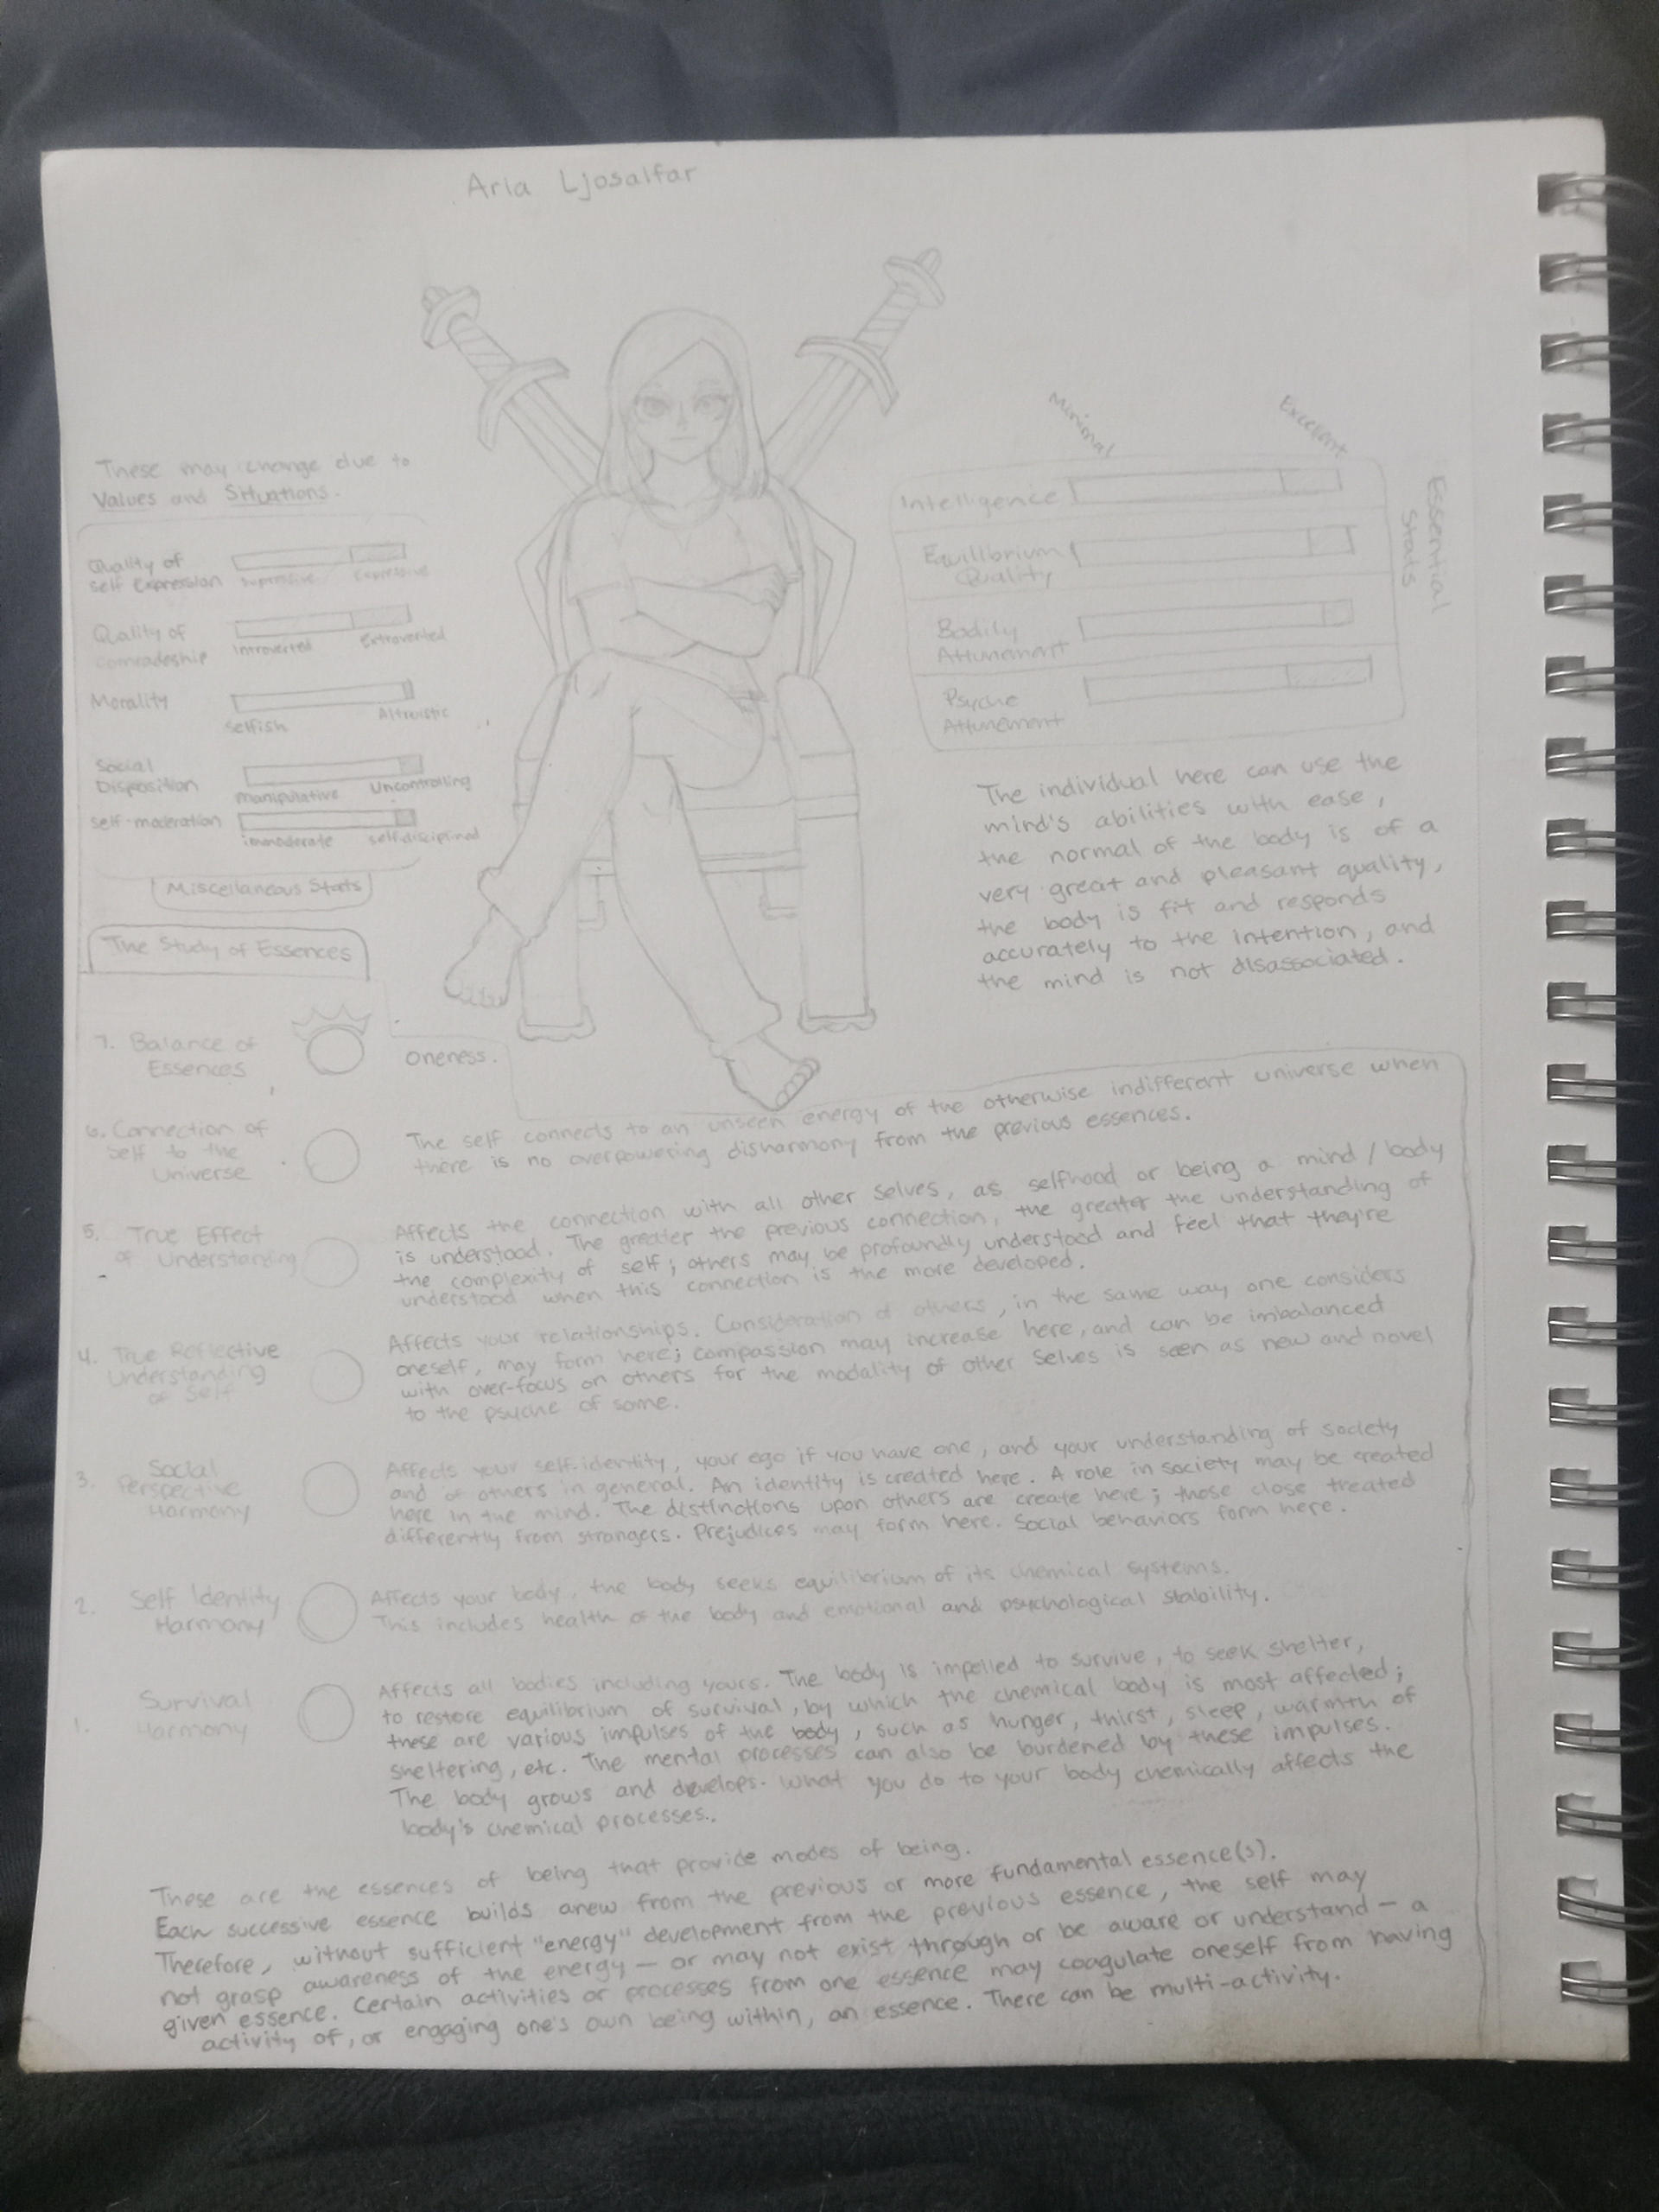 Aria Ljosalfar
These may change due to
Values and Situations.
Quality of
Self Expression
Supressive Expressive
Quality of
Comradeship
Introverted Extroverted
Morality
Selfish Altruistic
Social
Disposition
manipulative Uncontrolling
self-moderation
immoderate selfdisciplined
Miscellaneous Stats
Minimal
Excellent
Essential
Stats
Intelligence
Equilibrium
Quality
Bodily
Attunement
Psyche
Attunement
The individual here can use the
mind's abilities with ease,
the normal of the body is of a
very great and pleasant quality,
the body is fit and responds
accurately to the intention, and
the mind is not disassociated.
The Study of Essences
7. Balance of
Essences
Oneness.
6. Connection of
Self to the
Universe
The self connects to an unseen energy of the otherwise indifferent universe when
there is no overpowering disharmony from the previous essences.
5. True Effect
of Understanding
Affects the connection with all other selves, as selfhood or being a mind/body
is understood. The greater the previous connection, the greater the understanding of
the complexity of self; others may be profoundly understood and feel that they're
understood when this connection is the more developed.
4. True Reflective
Understanding
of Self
Affects your relationships. Consideration of others, in the same way one considers
oneself, may form here; compassion may increase here, and can be imbalanced
with over-focus on others for the modality of other Selves is seen as new and novel
to the psyche of some.
3. Social
Perspective
Harmony
Affects your self-identity, your ego if you have one, and your understanding of society
and of others in general. An identity is created here. A role in society may be created
here in the mind. The distinotions upon others are create here; those close treated
differently from strangers. Prejudices may form here. Social behaviors form here.
2. Self Identity
Harmony
Affects your body, the body seeks equilibrium of its chemical systems.
This includes health of the body and emotional and psychological stability.
1. Survival
Harmony
Affects all bodies including yours. The body is impelled to survive, to seek shelter,
to restore equilibrium of survival, by which the chemical body is most affected;
these are various impulses of the body, such as hunger, thirst, sleep, warmth of
sheltering, etc. The mental processes can also be burdened by these impulses.
The body grows and develops. What you do to your body chemically affects the
body's chemical processes.
These are the essences of being that provide modes of being.
Each successive essence builds anew from the previous or more fundamental essence(s).
Therefore, without sufficient "energy" development from the previous essence, the self may
not grasp awareness of the energy — or may not exist through or be aware or understand — a
given essence. Certain activities or processes from one essence may coagulate oneself from having
activity of, or engaging one's own being within, an essence. There can be multi-activity.